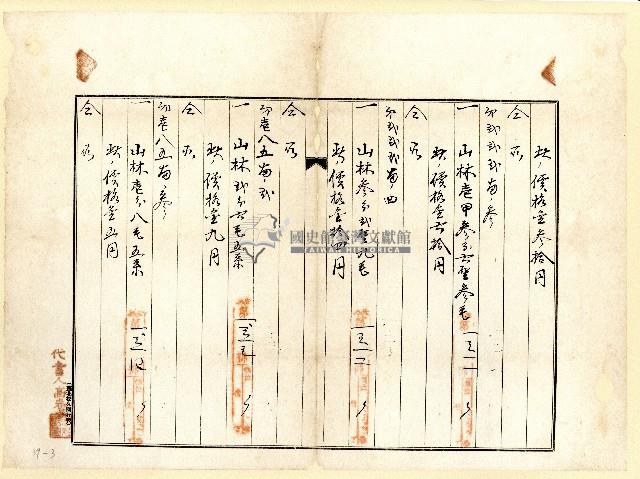 此ノ價格金參拾円
仝所
第貳貳貳番ノ參
一山林壱甲參分六厘參毛
此ノ價格金六拾円
仝所
第貳貳貳番ノ四
一山林參分貳厘九毛
此ノ價格金拾四円
仝所
第壱八五番ノ貳
一山林貳分六毛五糸
此ノ價格金九円
仝所
第壱八五番ノ參
一山林壱分八毛五糸
此ノ價格金五円
仝所
代書人高
國史館臺灣文獻館
TAIWAN HISTORICA
37-3